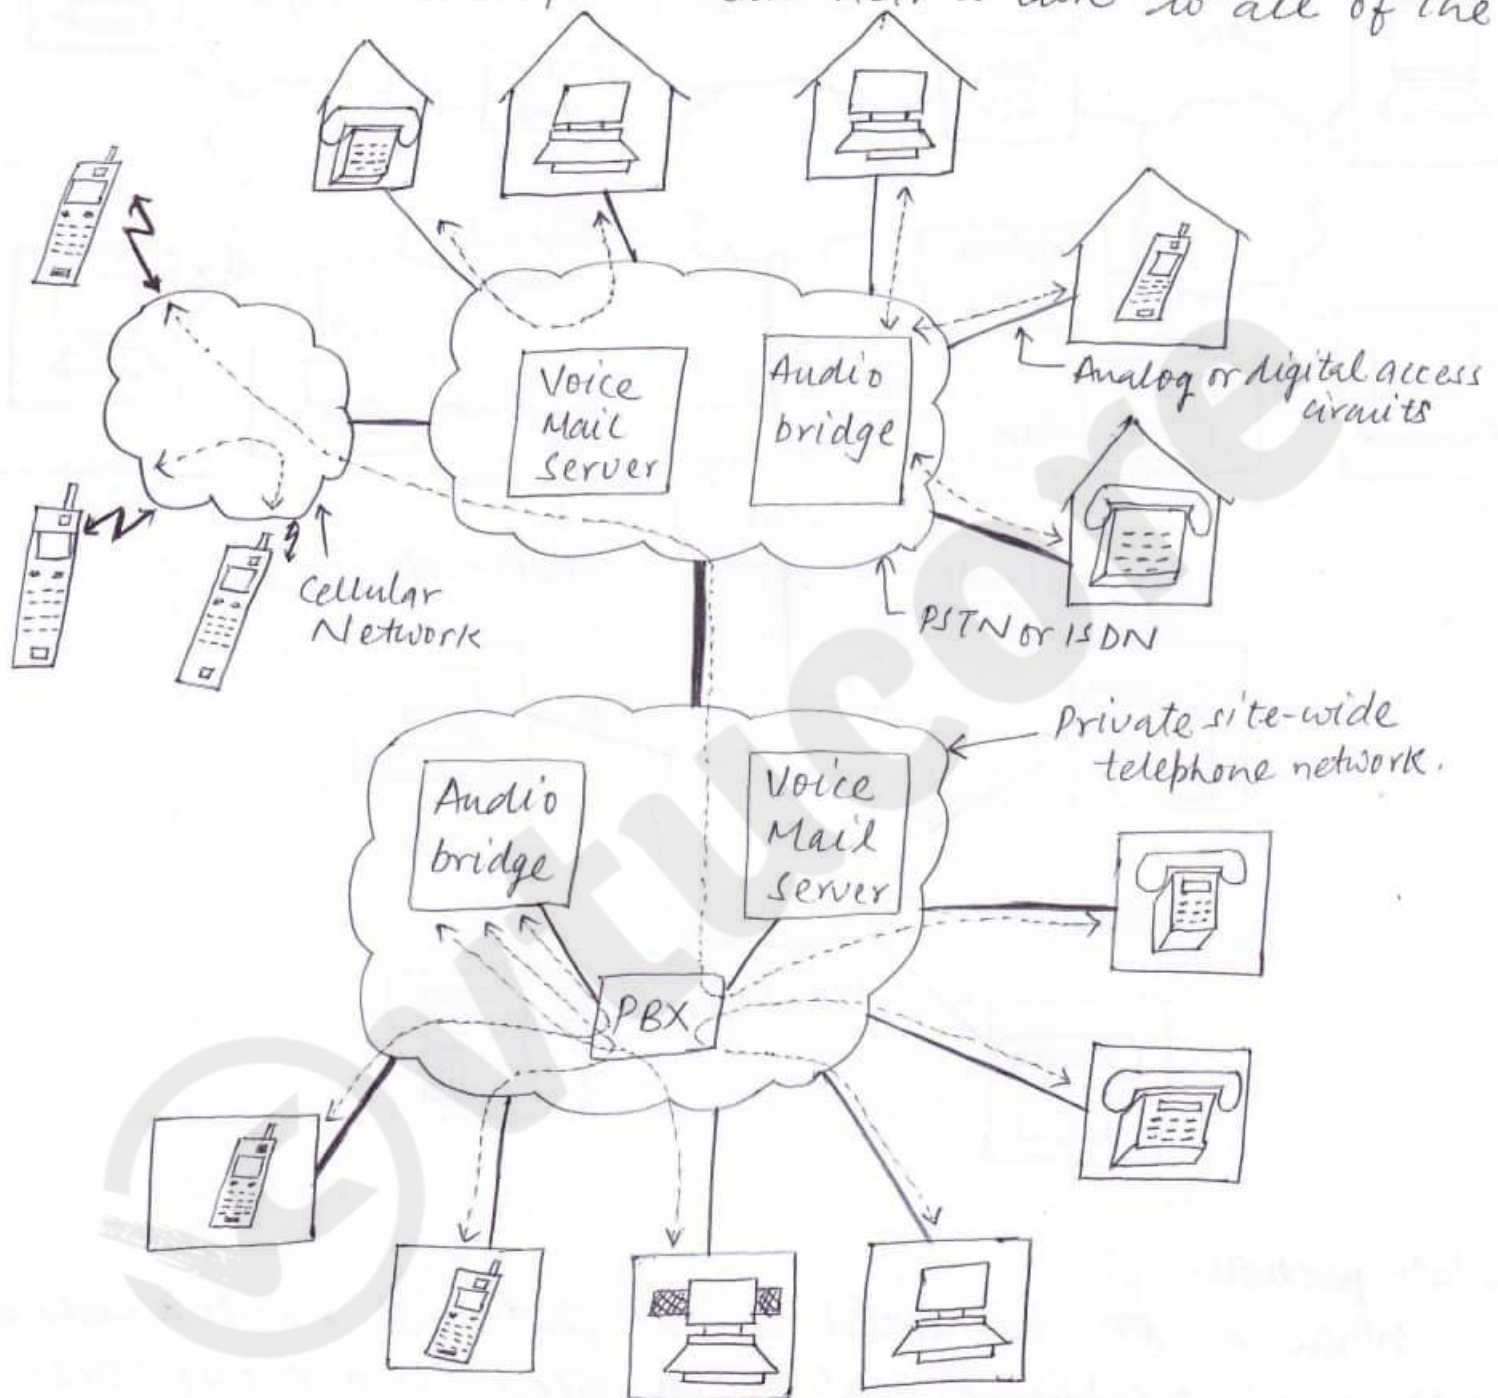 to all of the
Voice
Mail
Server
Audio
bridge
Analog or digital access
circuits
Cellular
Network
PSTN or ISDN
Private site-wide
telephone network.
Audio
bridge
Voice
Mail
Server
PBX
vtucore